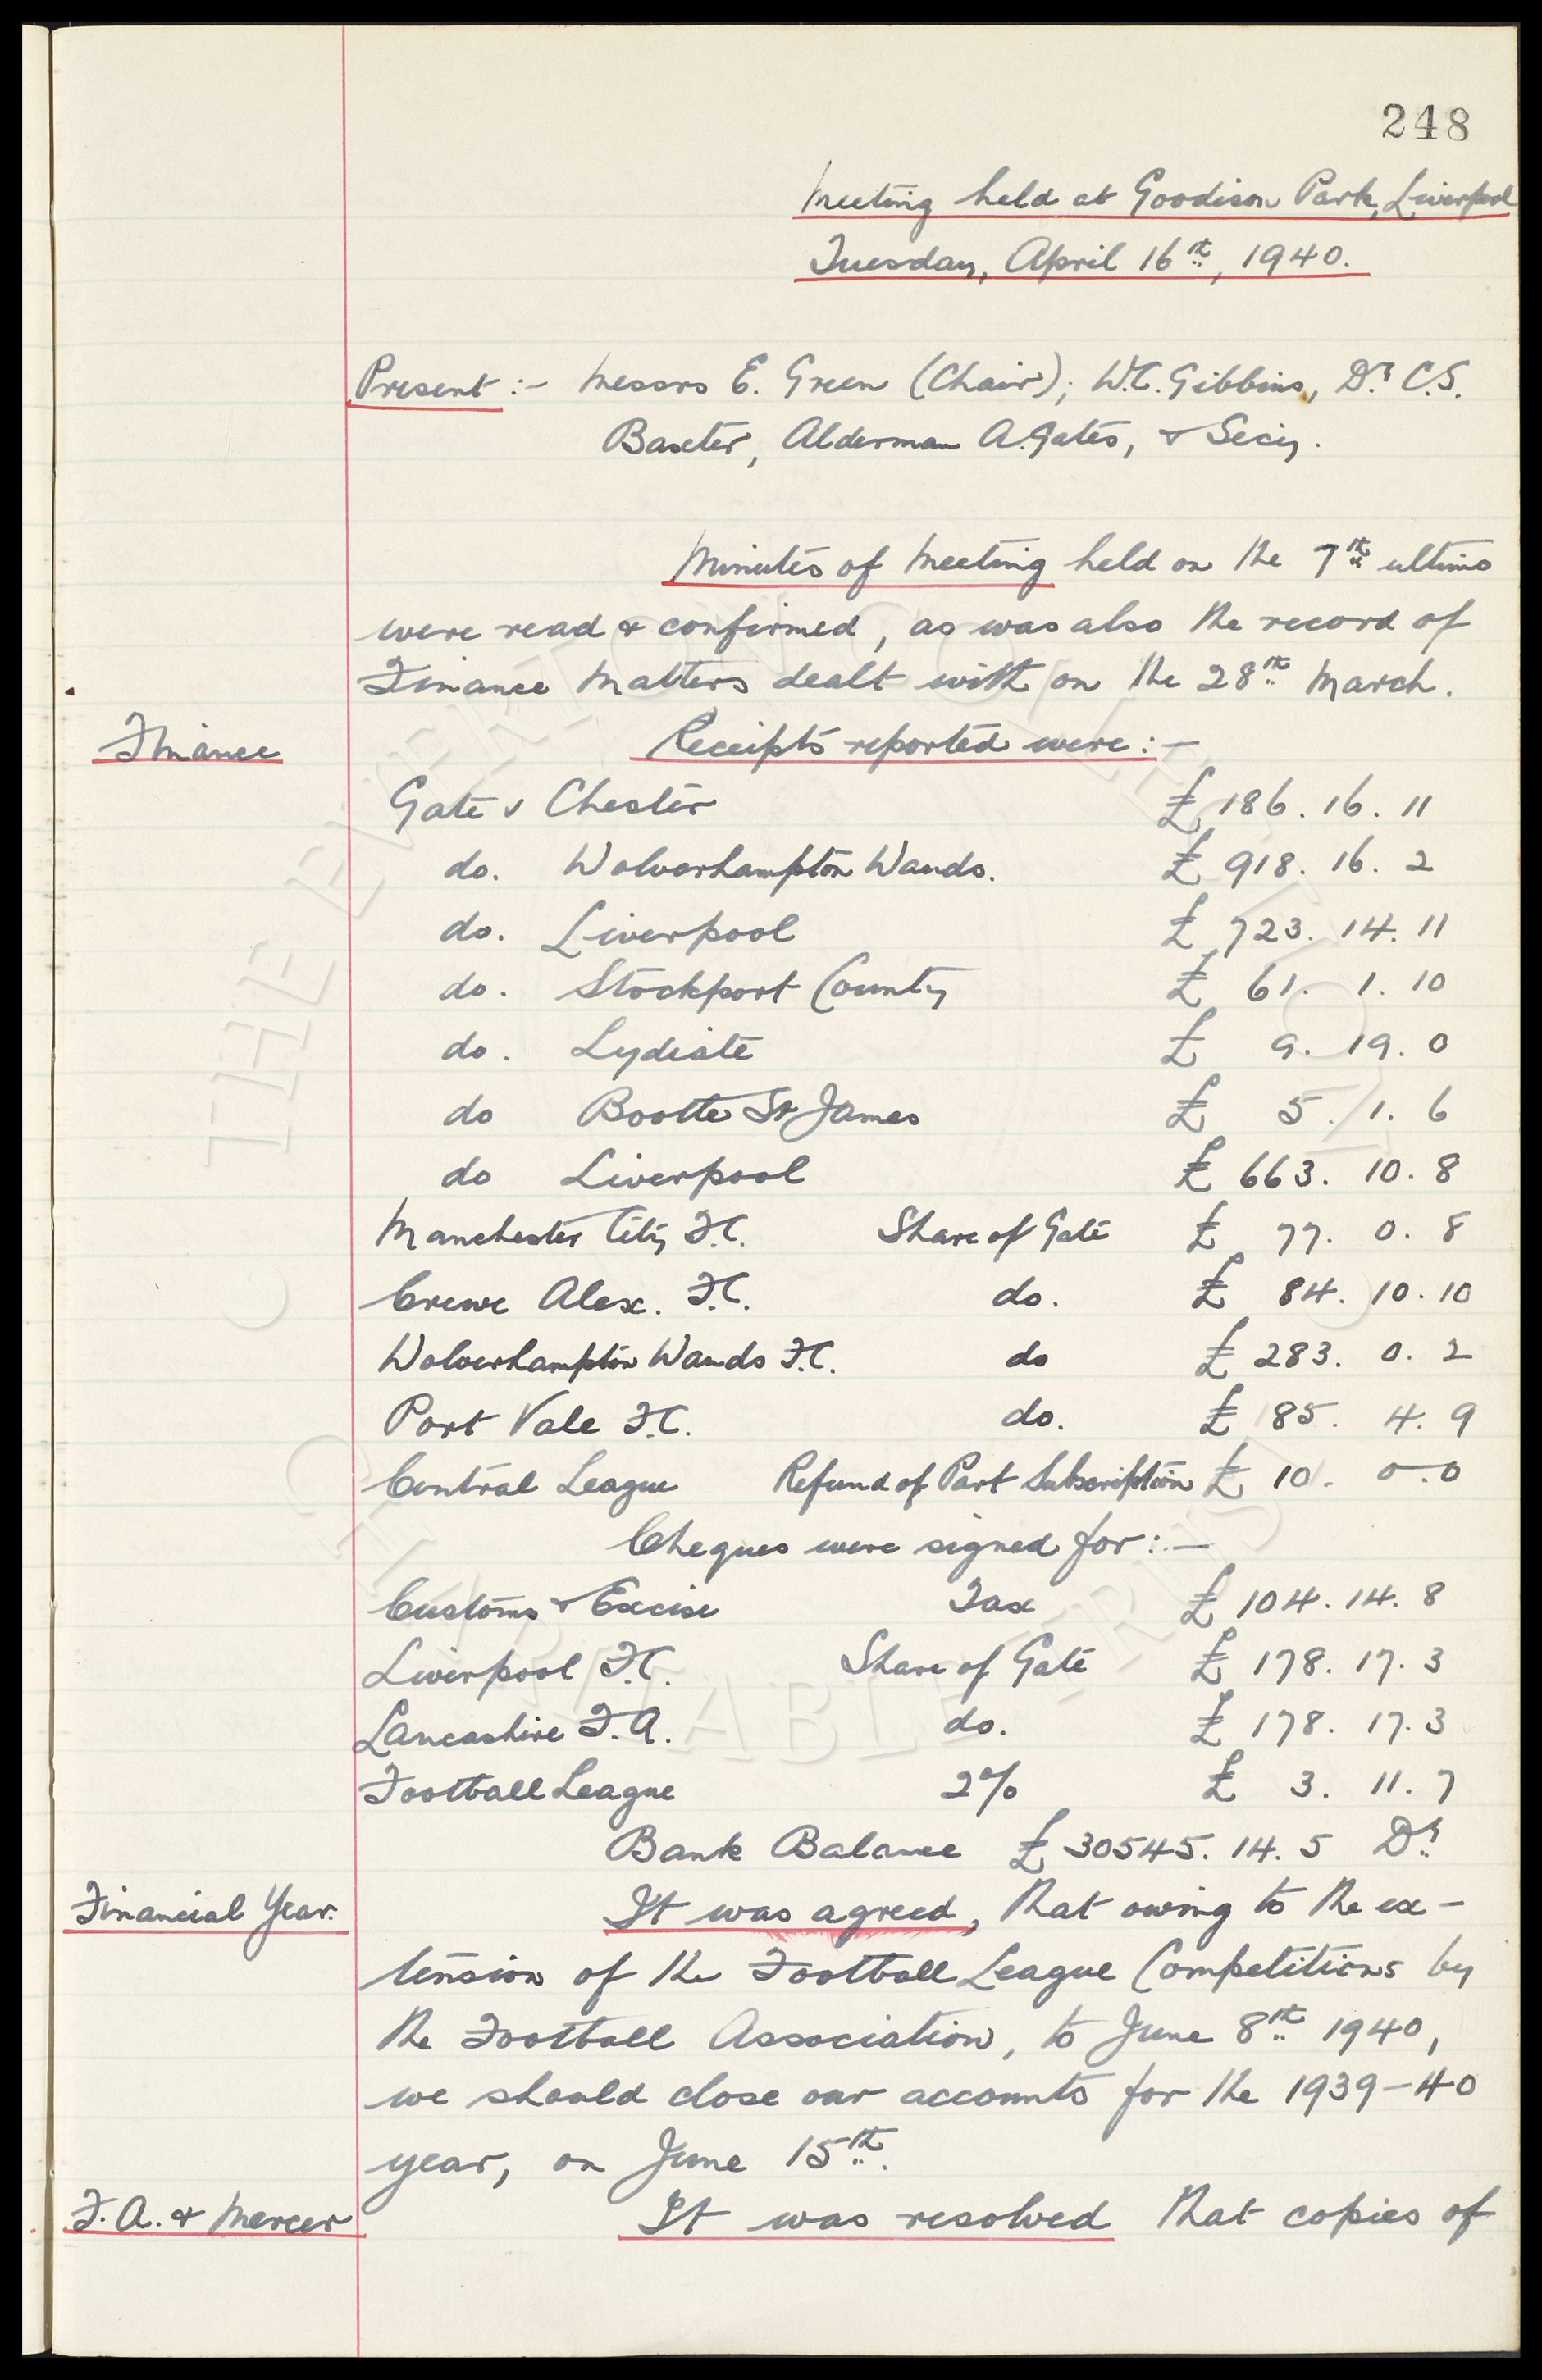 248
Meeting held at Goodison Park, Liverpool
Tuesday, April 16th, 1940.
Present :- Messrs E. Green (Chair); W.C. Gibbins, Dr. C.S.
Baxter, Alderman A. Gates, & Secy.
Minutes of Meeting held on the 7th ultimo
were read & confirmed, as was also the record of
Finance Matters dealt with on the 28th March.
Finance Receipts reported were :-
Gate v Chester £ 186. 16. 11
do. Wolverhampton Wands. £ 918. 16. 2
do. Liverpool £ 723. 14. 11
do. Stockport County £ 61. 1. 10
do. Lydiate £ 9. 19. 0
do Bootle St James £ 5. 1. 6
do Liverpool £ 663. 10. 8
Manchester City F.C. Share of Gate £ 77. 0. 8
Crewe Alex. F.C. do. £ 84. 10. 10
Wolverhampton Wands F.C. do £ 283. 0. 2
Port Vale F.C. do. £ 85. 4. 9
Central League Refund of Part Subscription £ 10. 0. 0
Cheques were signed for :-
Customs & Excise Tax £ 104. 14. 8
Liverpool F.C. Share of Gate £ 178. 17. 3
Lancashire F.A. do. £ 178. 17. 3
Football League 2% £ 3. 11. 7
Bank Balance £ 30545. 14. 5 Dr.
Financial Year. It was agreed, that owing to the ex-
tension of the Football League Competitions by
the Football Association, to June 8th 1940,
we should close our accounts for the 1939-40
year, on June 15th.
F.A. & Mercer It was resolved that copies of
THE EVERTON COLLECTION
CHARITABLE TRUST